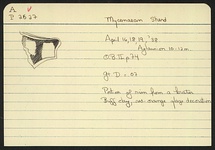 A
P 7827
Mycenaean Sherd
April 16, 18, 19, '38
O.B. II p 74
gr. D. = .07
Portion of rim from a krater
Buff clay, red orange glaze decoration